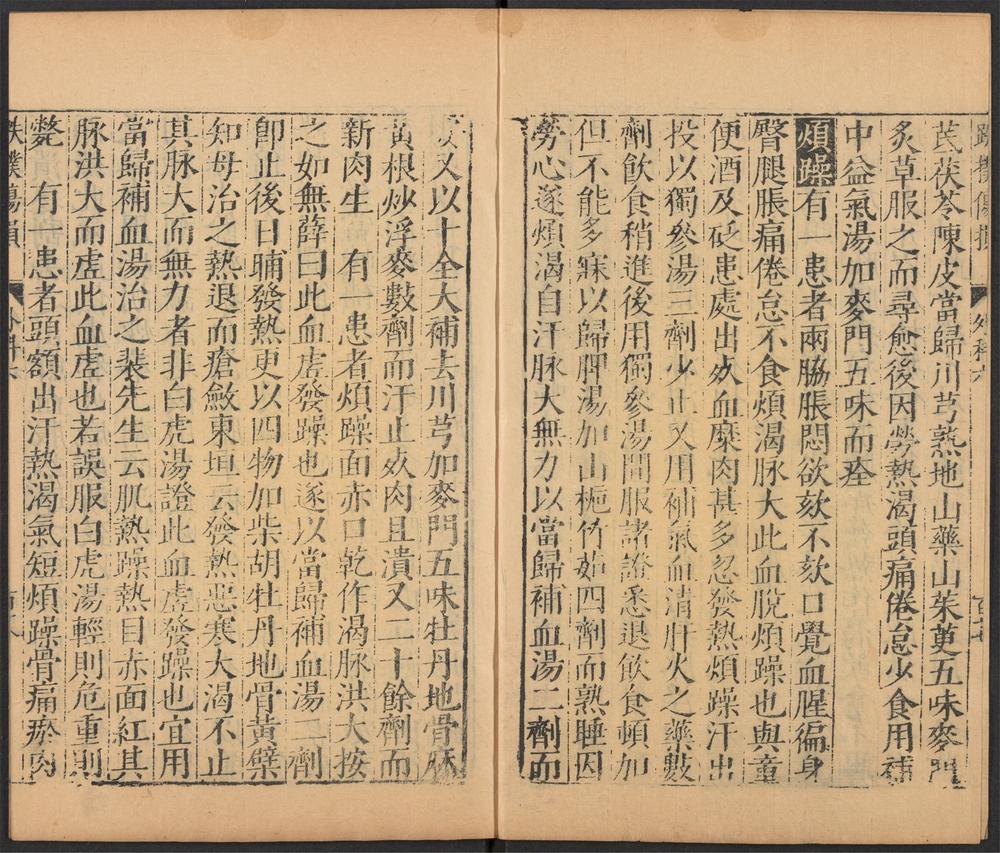 芪茯苓陳皮當歸川芎熟地山藥山茱萸五味麥門
炙草服之而尋愈後因勞熱渴頭痛倦怠少食用補
中益氣湯加麥門五味而痊
煩躁有一患者兩脇脹悶欲欬不欬口覺血腥徧身
臀腿脹痛倦怠不食煩渴脉大此血脫煩躁也與童
便酒及砭患處出死血糜肉甚多忽發熱煩躁汗出
投以獨參湯三劑少止又用補氣血清肝火之藥數
劑飲食稍進後用獨參湯間服諸證悉退飲食頓加
但不能多寐以歸脾湯加山梔竹茹四劑而熟睡因
勞心遂煩渴自汗脉大無力以當歸補血湯二劑而
又以十全大補去川芎加麥門五味牡丹地骨麻
黃根炒浮麥數劑而汗止死肉且潰又二十餘劑而
新肉生 有一患者煩躁面赤口乾作渴脉洪大按
之如無薛曰此血虛發躁也遂以當歸補血湯二劑
卽止後日晡發熱更以四物加柴胡牡丹地骨黃檗
知母治之熱退而瘡斂東垣云發熱惡寒大渴不止
其脉大而無力者非白虎湯證此血虛發躁也宜用
當歸補血湯治之裴先生云肌熱躁熱目赤面紅其
脉洪大而虛此血虛也若誤服白虎湯輕則危重則
斃 有一患者頭額出汗熱渴氣短煩躁骨痛瘀肉